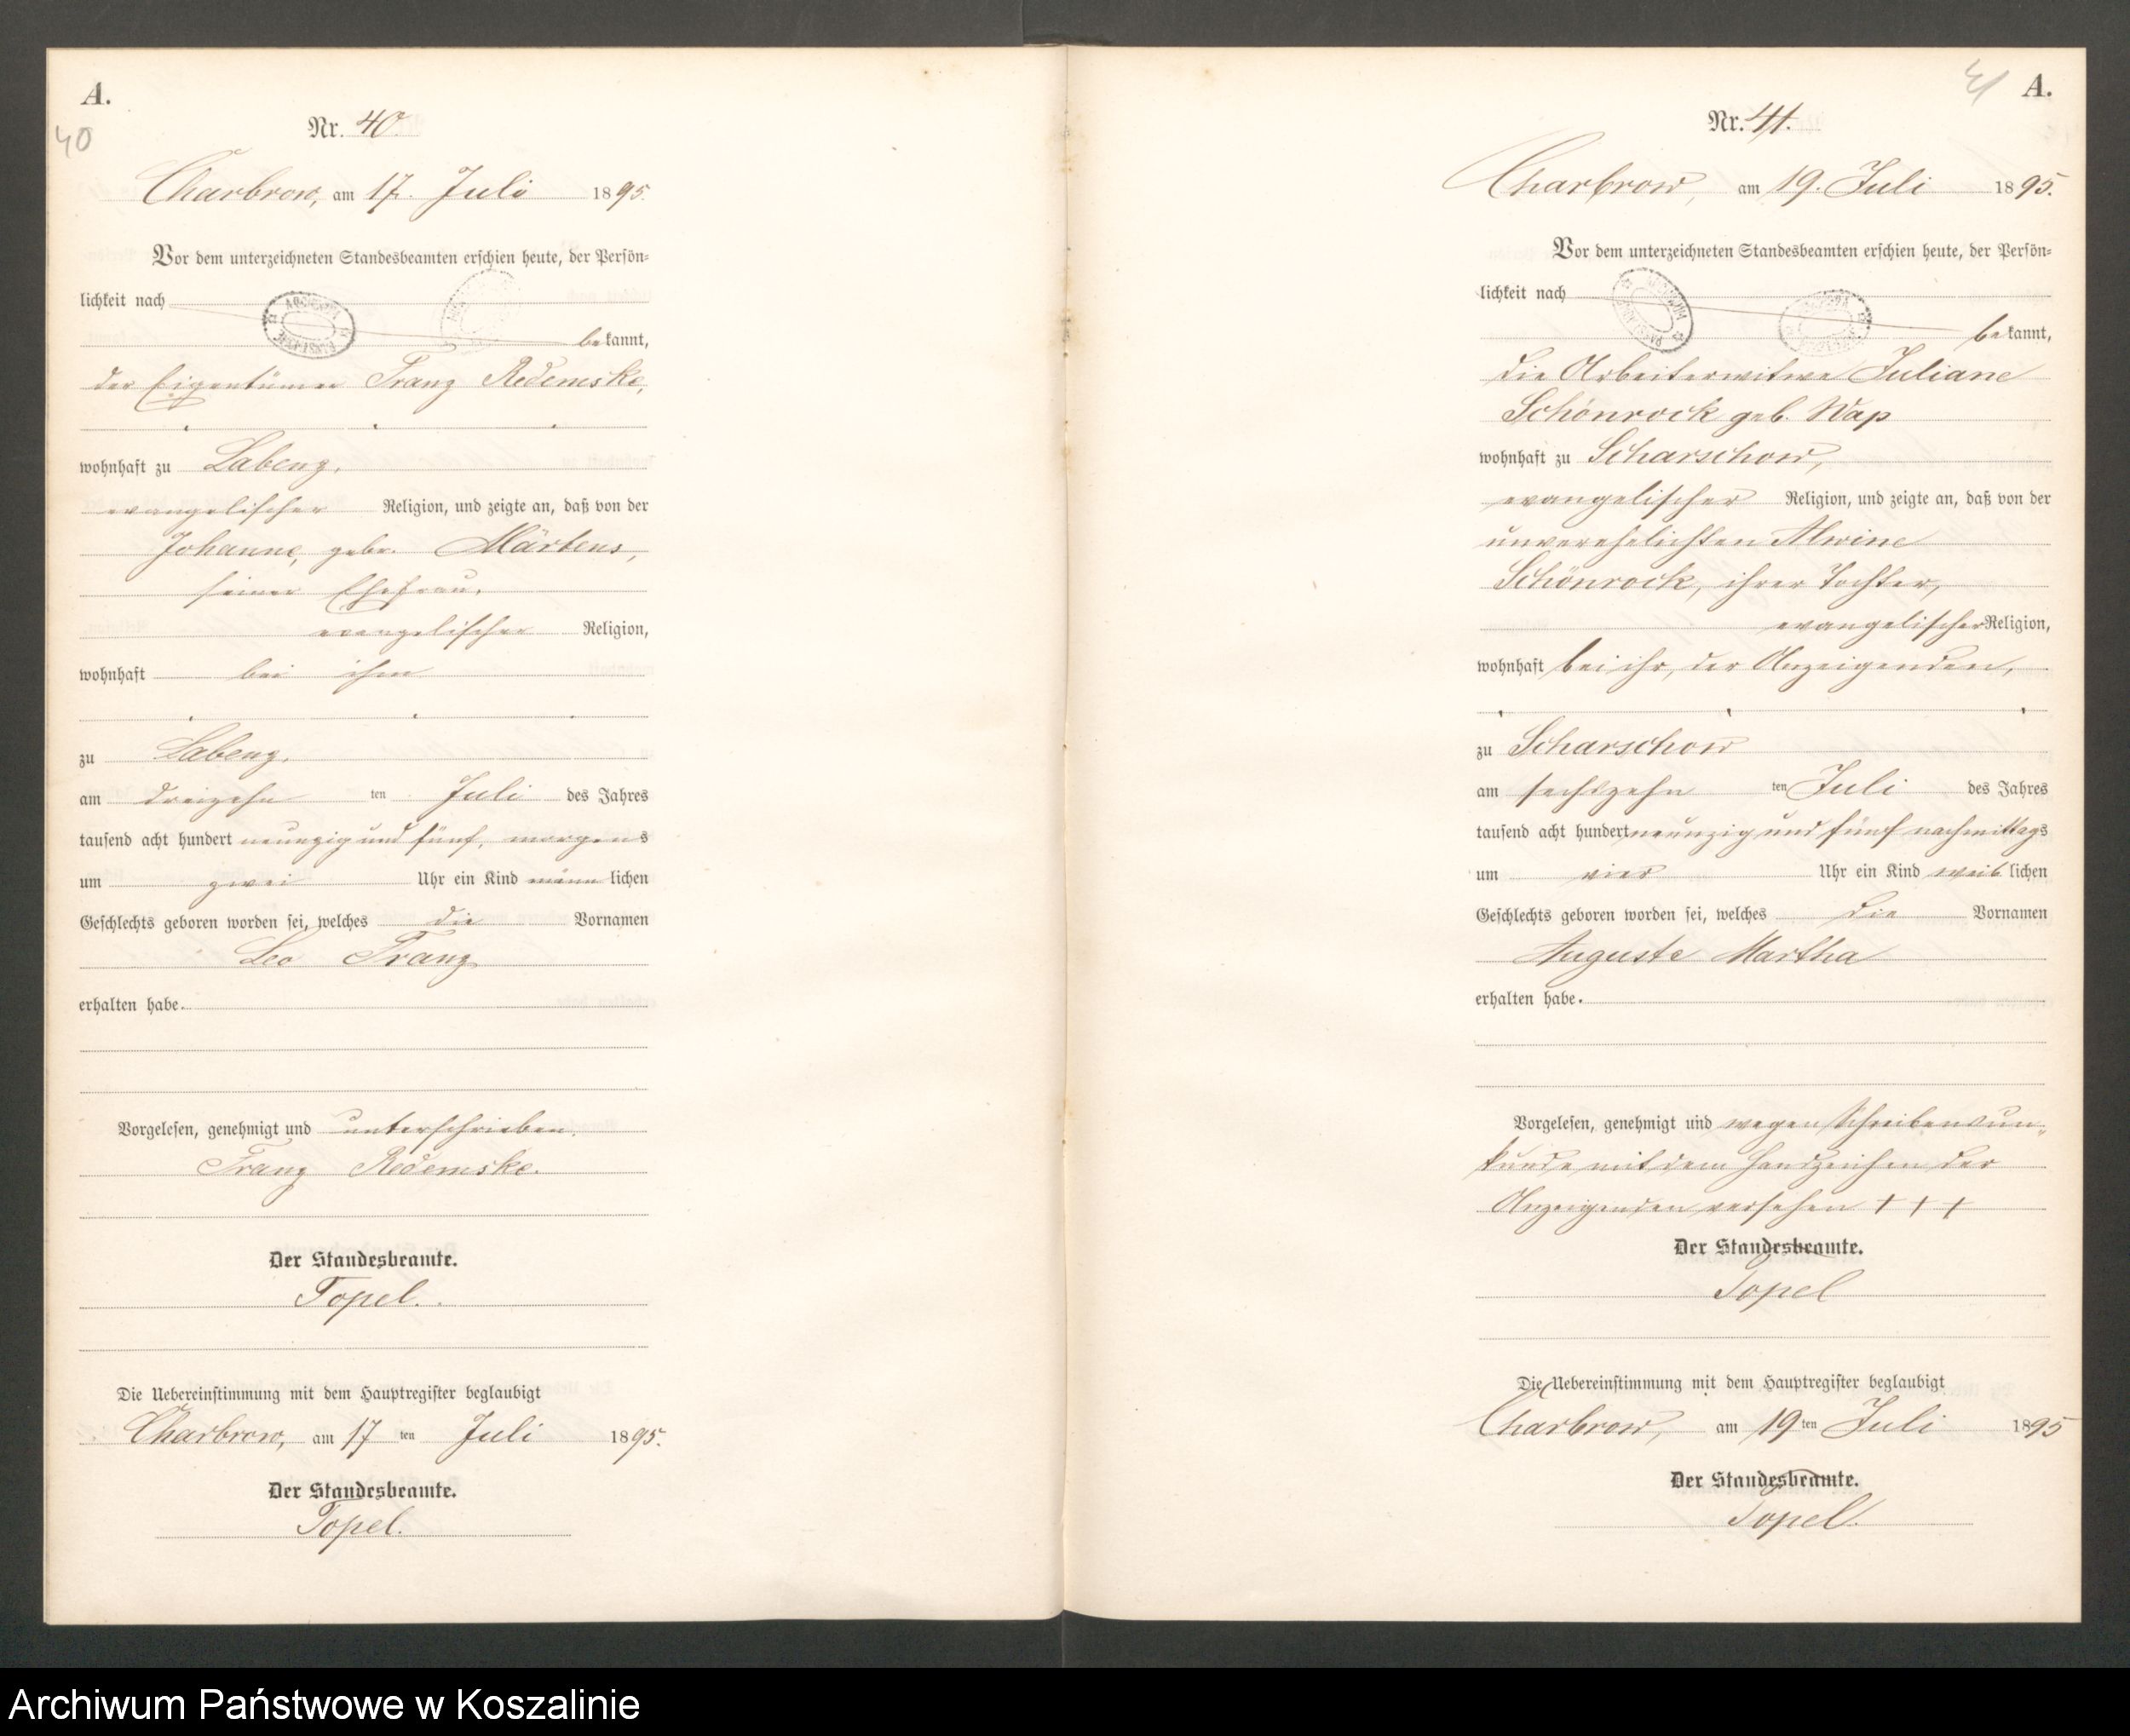 A.
40
Nr. 40.
Charbrow, am 17. Juli 1895.
Vor dem unterzeichneten Standesbeamten erschien heute, der Persön-
lichkeit nach
bekannt,
der Eigentümer Franz Redemske,
wohnhaft zu Labenz,
evangelischer Religion, und zeigte an, daß von der
Johanne, geb. Märtens,
seiner Ehefrau,
evangelischer Religion,
wohnhaft bei ihm
zu Labenz,
am dreizehn ten Juli des Jahres
tausend acht hundert neunzig und fünf, morgens
um zwei Uhr ein Kind männlichen
Geschlechts geboren worden sei, welches die Vornamen
Leo Franz
erhalten habe.
Vorgelesen, genehmigt und unterschrieben.
Franz Redemske.
Der Standesbeamte.
Topel.
Die Uebereinstimmung mit dem Hauptregister beglaubigt
Charbrow, am 17 ten Juli 1895.
Der Standesbeamte.
Topel.
41 A.
Nr. 41.
Charbrow, am 19. Juli 1895.
Vor dem unterzeichneten Standesbeamten erschien heute, der Persön-
lichkeit nach
bekannt,
die Arbeiterwitwe Juliane
Schönrock geb. Wap
wohnhaft zu Scharschow,
evangelischer Religion, und zeigte an, daß von der
unverehelichten Alwine
Schönrock, ihrer Tochter,
evangelischer Religion,
wohnhaft bei ihr, der Anzeigenden,
zu Scharschow
am sechszehn ten Juli des Jahres
tausend acht hundert neunzig und fünf nachmittags
um vier Uhr ein Kind weiblichen
Geschlechts geboren worden sei, welches die Vornamen
Auguste Martha
erhalten habe.
Vorgelesen, genehmigt und wegen Schreibensun-
kunde mit dem Handzeichen der
Anzeigenden versehen + + +
Der Standesbeamte.
Topel
Die Uebereinstimmung mit dem Hauptregister beglaubigt
Charbrow, am 19 ten Juli 1895
Der Standesbeamte.
Topel.
Archiwum Państwowe w Koszalinie